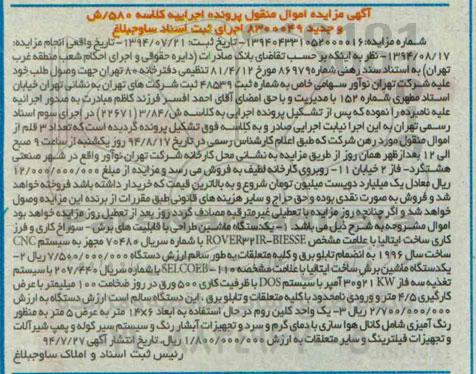 آگهی مزایده اموال منقول پرونده اجراییه کلاسه ۵۸۰/ش
و جدید ۸۳۰۰۰۴۹ اجرای ثبت اسناد ساوجبلاغ
شماره مزایده: ۱۳۹۴۰۴۳۳۱۰۵۲۰۰۰۰۱۶- تاریخ ثبت: ۱۳۹۴/۰۷/۲۱- تاریخ واقعی انجام مزایده:
۱۳۹۴/۰۸/۱۷- نظر به اینکه بر حسب تقاضای بانک صادرات (دایره حقوقی و اجرای احکام شعب منطقه غرب
تهران) به استناد سند رهنی شماره ۸۶۹۷۹ مورخ ۸۱/۴/۱۲ تنظیمی دفترخانه ۸۰ تهران جهت وصول طلب خود
علیه شرکت تهران نوآور سهامی خاص به شماره ثبت ۴۸۵۳۹ ثبت شرکت های تهران به نشانی تهران خیابان
استاد مطهری شماره ۱۵۲ با مدیریت و با حق امضای آقای احمد افسر فرزند کاظم مبادرت به صدور اجرائیه
علیه نامبرده را نموده که پس از تشکیل پرونده اجرایی به کلاسه ش/۳/۸۴ (۲۲۶۷۱) در اجرای سوم اسناد
رسمی تهران به این اجرا نیابت اجرایی صادر و به کلاسه فوق تشکیل پرونده گردیده است که تعداد ۳ قلم از
اموال منقول مورد رهن شرکت که طبق اعلام کارشناس رسمی در تاریخ ۹۴/۸/۱۷ روز یکشنبه از ساعت ۹ صبح
الی ۱۲ بعدازظهر همان روز از طریق مزایده به نشانی محل کارخانه شرکت تهران نوآور واقع در شهر صنعتی
هشتگرد- فاز ۲ خیابان ۱۱- روبروی کارخانه لطیف به فروش می رسد و مزایده از مبلغ ۱۲/۰۰۰/۰۰۰/۰۰۰
ریال معادل یک میلیارد دویست میلیون تومان شروع و به بالاترین قیمت که خریدار داشته باشد فروخته خواهد
شد و فروش به صورت نقدی بوده و حق حراج و سایر هزینه های قانونی طبق مقررات از برنده این مزایده وصول
خواهد شد و اگر چنانچه روز مزایده با تعطیلی غیرمترقبه مصادف گردد روز بعد از تعطیل روز مزایده خواهد بود
اموال مشروحه به شرح ذیل می باشد. ۱- یکدستگاه ماشین طراحی با قابلیت های برش- سوراخ کاری و فرز
کاری ساخت ایتالیا با علامت مشخص ROVER۳۲۲IR-BIESSE با شماره سریال ۷۰۴۸۰ مجهز به سیستم CNC
ساخت سال ۱۹۹۶ به انضمام تابلو برق و کلیه متعلقات به طور سالم ارزش دستگاه ۷/۵۰۰/۰۰۰/۰۰۰ ریال ۲-
یکدستگاه ماشین برش ساخت ایتالیا با علامت مشخصه ۱۱۰-SELCOEB با شماره سریال ۲۰۷/۴۴۰ با سیستم
تغذیه سه فاز ۲۱KW و ۳۰ آمپر با سیستم DOS با ظرفیت کاری ۵۰۰ ورق در روز ضخامت ۱۰۰ میلیمتر با عرض
کارگیری ۴/۵ متر و ورودی نامحدود با کلیه متعلقات و تابلو برق. این دستگاه سالم است ارزش دستگاه به ارزش
۲/۷۰۰/۰۰۰/۰۰۰ ریال ۳- یک واحد کلین روم در حال استفاده به ابعاد ۱۴×۶ متر به عرض ۵ متر به منظور
رنگ آمیزی شامل کانال هوا سازی با دمای گرم و سرد و تجهیزات آبشار رنگ و سیستم سیرکوله و پمپ شیرآلات
و تجهیزات فیلترینگ و سایر متعلقات به ارزش ۱/۸۰۰/۰۰۰/۰۰۰ ریال. تاریخ انتشار آگهی ۹۴/۷/۲۷
رئیس ثبت اسناد و املاک ساوجبلاغ